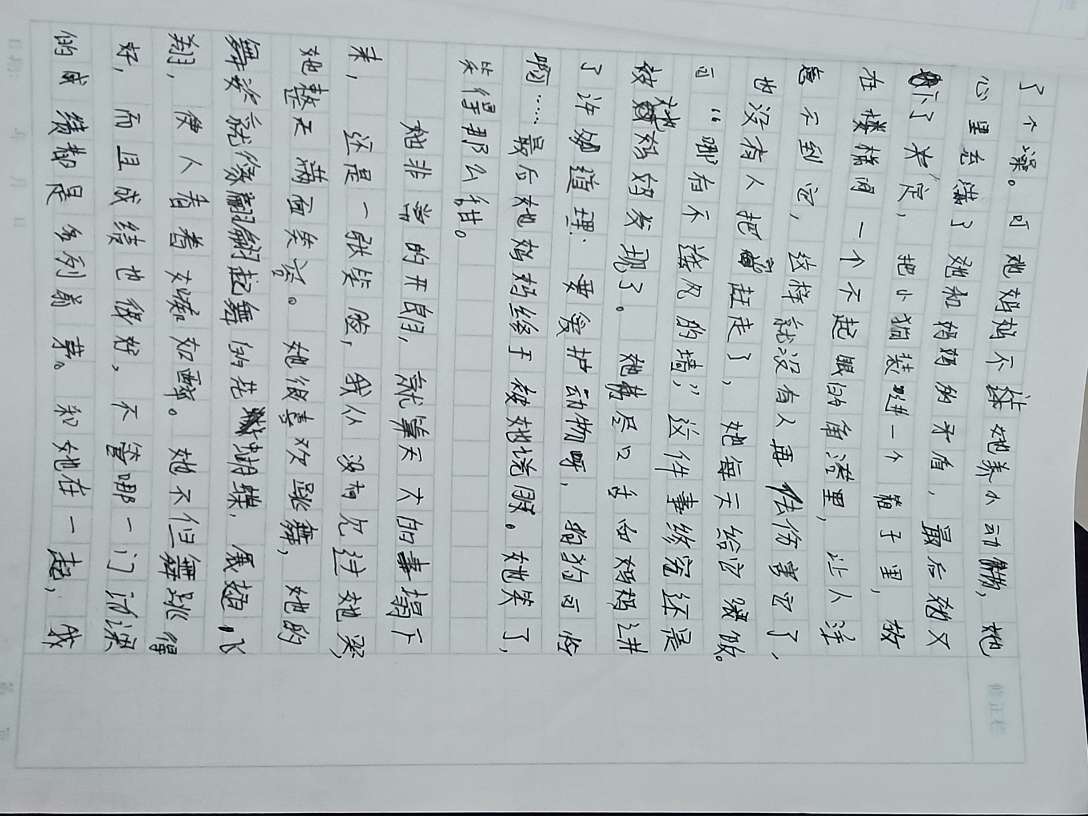 了个澡。可她妈妈不让她养小动物，她
心里充满了她和妈妈的矛盾，最后她又
下了决定，把小狗装进一个箱子里，放
在楼梯间一个不起眼的角落里，让人注
意不到它，这样就没有人再去伤害它了，
也没有人把它赶走了，她每天给它喂饭。
可“哪有不透风的墙，”这件事终究还是
被她妈妈发现了。她费尽口舌向妈妈讲
了许多道理：要爱护动物呀，狗狗可怜
啊……最后她妈妈终于被她说服。她笑了，
笑得那么甜。
她非常的开朗，就算天大的事塌下
来，还是一张笑脸，我从没有见过她哭，
她整天满面笑容。她很喜欢跳舞，她的
舞姿就像翩翩起舞的花蝴蝶，展翅飞
翔，使人看着如痴如醉。她不但舞跳得
好，而且成绩也很好，不管哪一门功课
的成绩都是名列前茅。和她在一起，我
修正栏